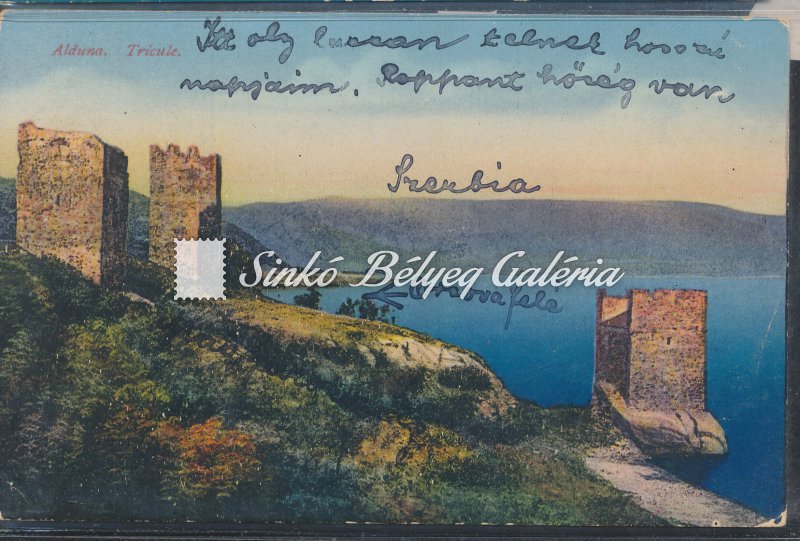 Alduna. Tricule.
Itt oly lassan telnek hosszú
napjaim. Roppant hőség van
Szerbia
Sinkó Bélyeg Galéria
← Orsova felé